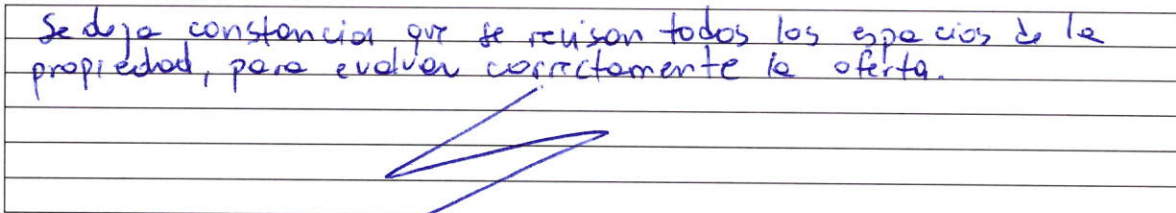 Se deja constancia que se revisan todos los espacios de la
propiedad, para evaluar correctamente la oferta.